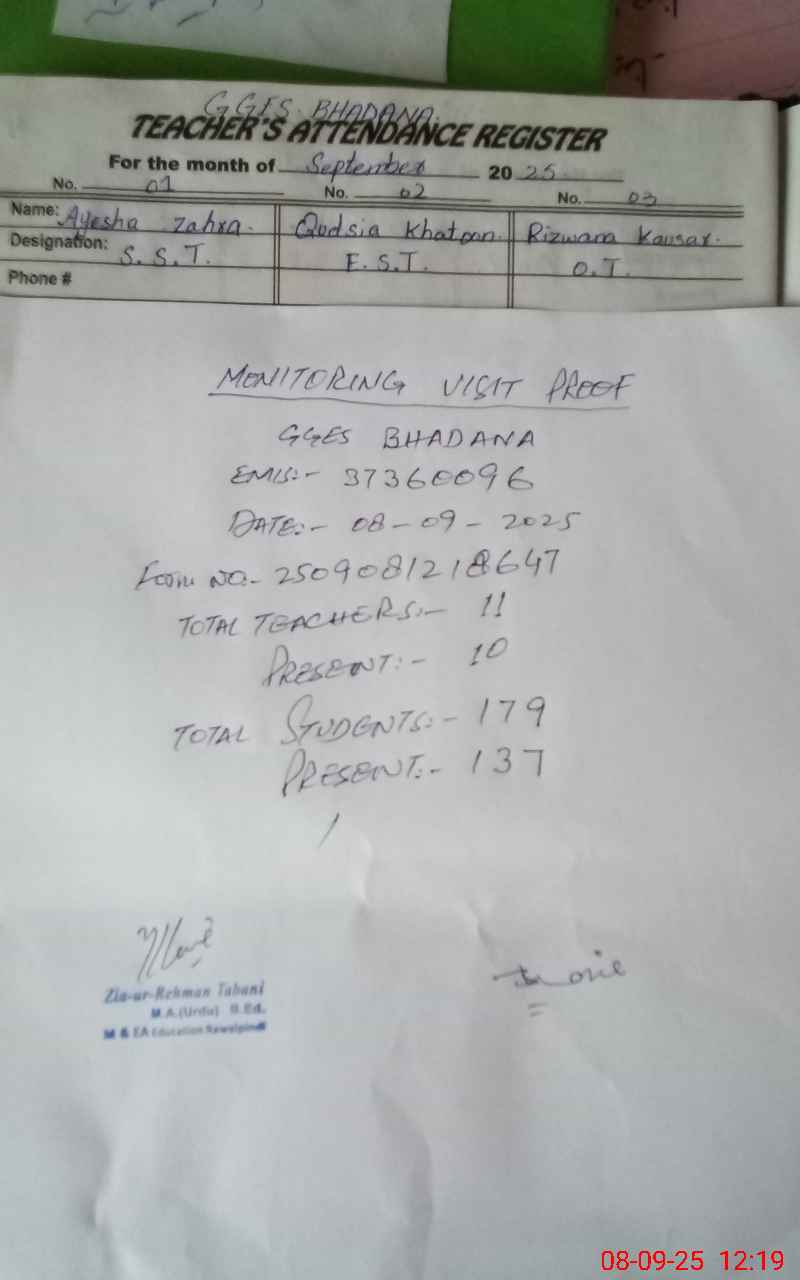 GGES BHADANA
TEACHER'S ATTENDANCE REGISTER
For the month of September 2025
No. 01 No. 02 No. 03
Name: Ayesha Zahra. Qudsia Khatoon. Rizwana Kausar.
Designation: S. S. T. E. S. T. O. T.
Phone #
MONITORING VISIT PROOF
GGES BHADANA
EMIS:- 37360096
DATE:- 08-09-2025
Form NO:- 2509081218647
TOTAL TEACHERS:- 11
PRESENT:- 10
TOTAL STUDENTS:- 179
PRESENT:- 137
Zia-ur-Rehman Tabani
M.A.(Urdu) B.Ed.
M & EA Education Rawalpindi
08-09-25 12:19